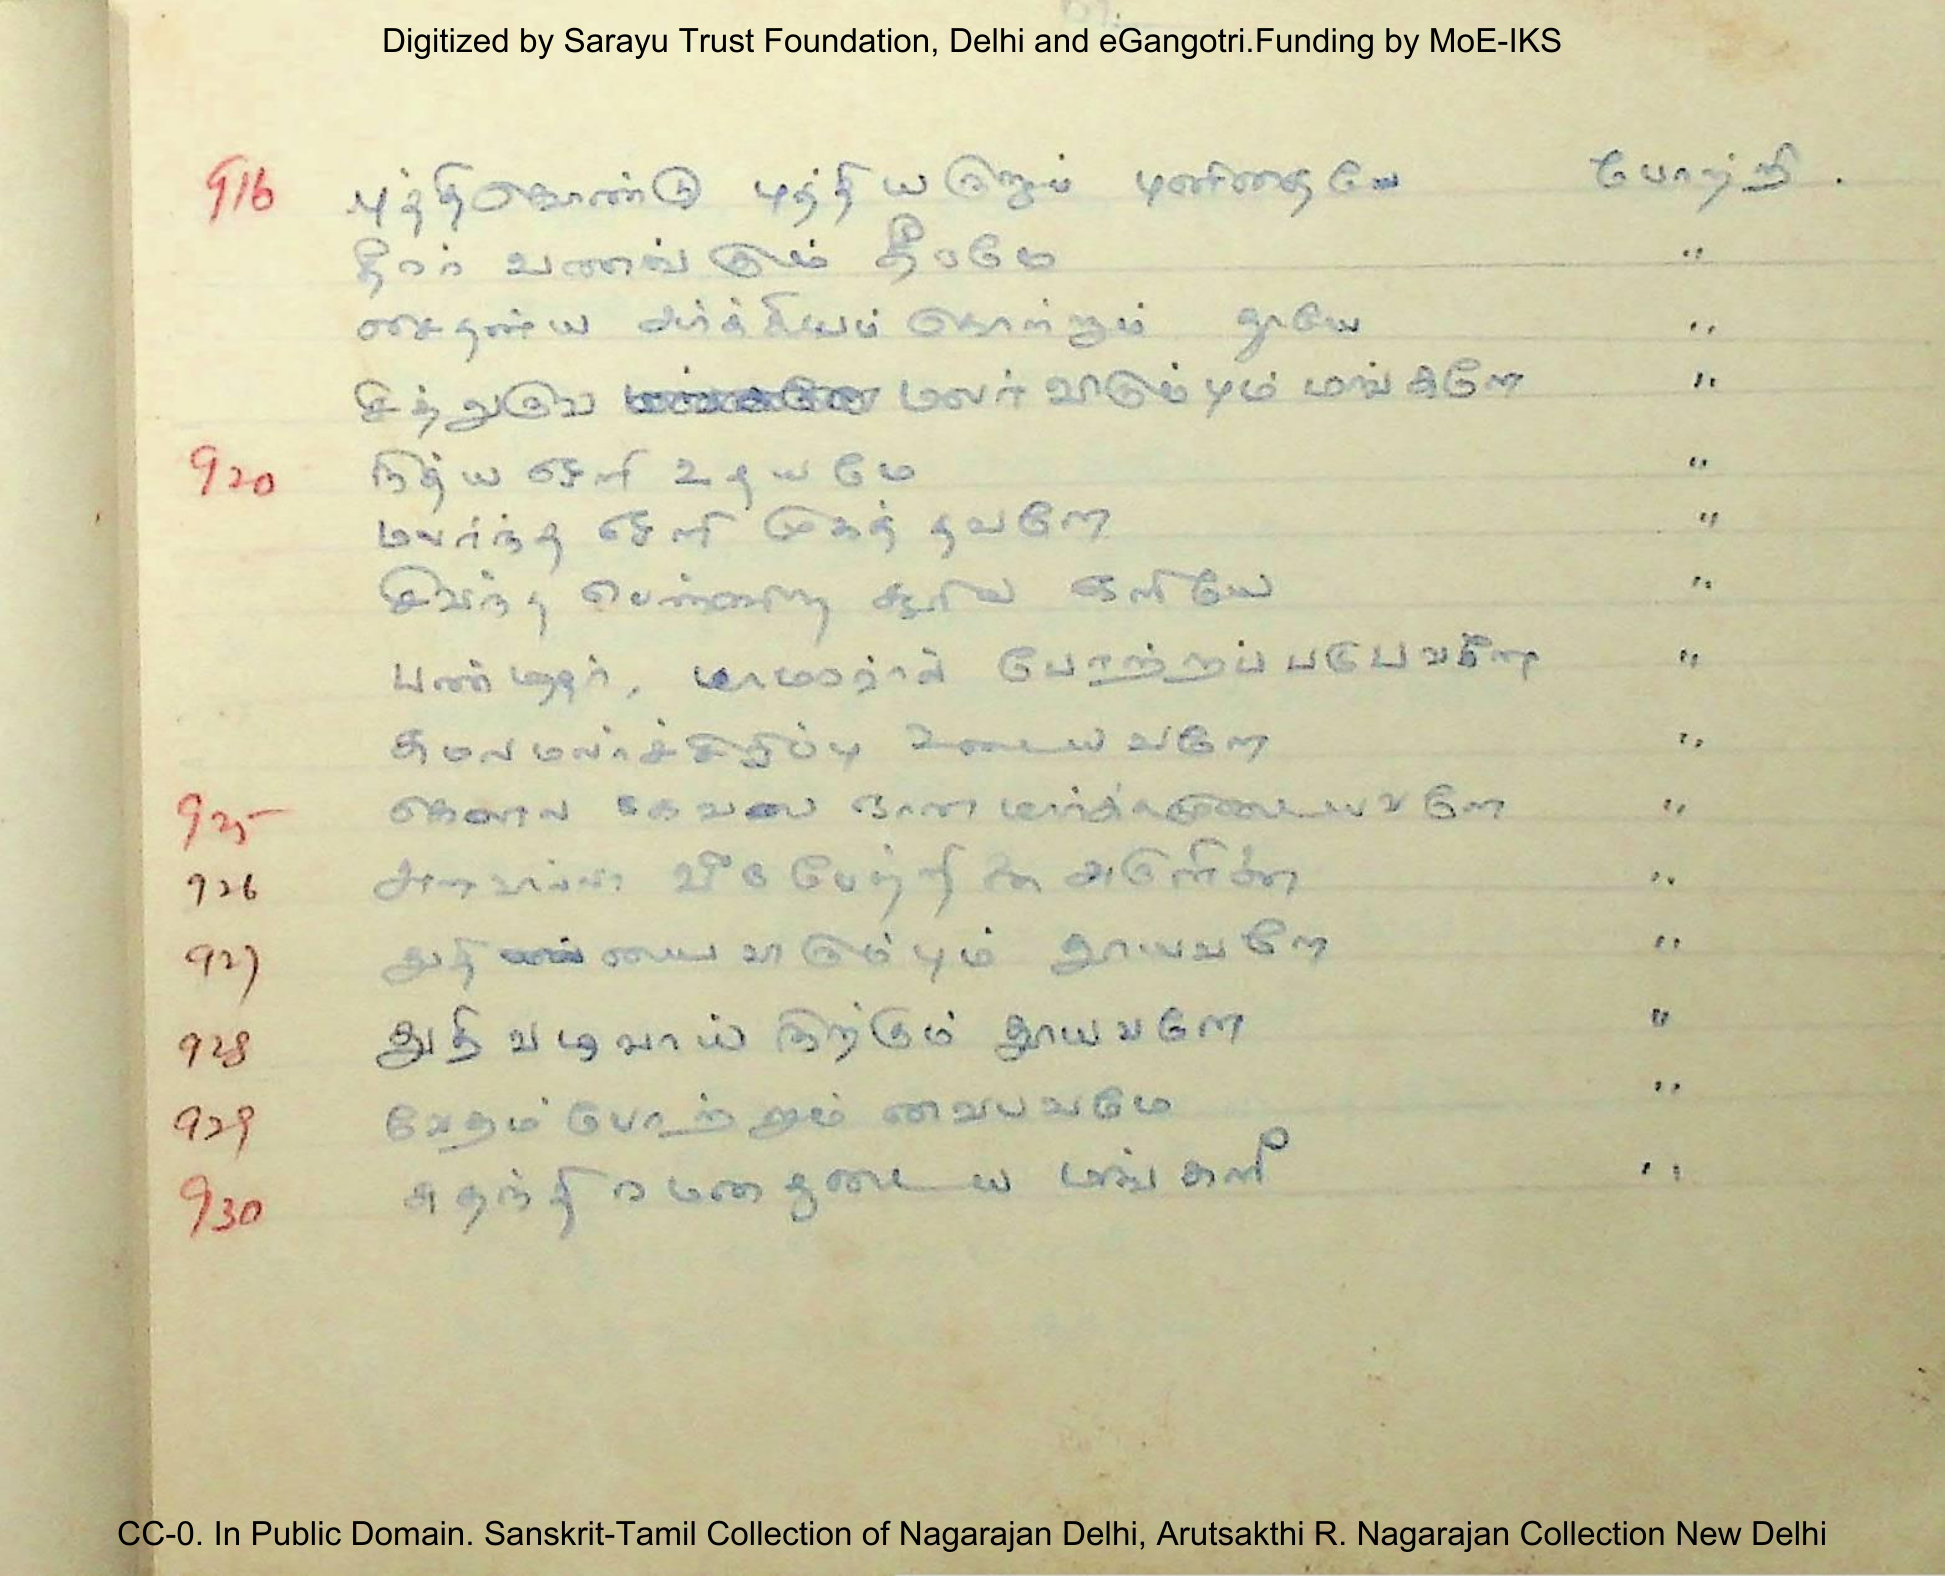 Digitized by Sarayu Trust Foundation, Delhi and eGangotri.Funding by MoE-IKS
916 புத்திகொண்டு புத்தியருளும் புனிதையே போற்றி .
தீரர் வணங்கும் தீரமே "
சைதன்ய அர்க்கியம் கொள்ளும் தாயே "
சித்துருவ மலர் விரும்பும் மங்களே "
920 நித்ய ஒளி உதயமே "
மலர்ந்த ஒளி முகத்தவளே "
சிவந்த சூரிய ஒளியே "
போற்றப்படுபவளே "
கமலமலர்ச்சிறப்பு உடையவளே "
925 கௌல கேவல ஞான "
926 வீடு அருளிக்க "
927 துதி யை விரும்பும் தூயவளே "
928 துதி வடிவாய் நிற்கும் தூயவளே "
929 வேதம் போற்றும் வைபவமே "
930 சுதந்திர மனதுடைய மங்களீ "
CC-0. In Public Domain. Sanskrit-Tamil Collection of Nagarajan Delhi, Arutsakthi R. Nagarajan Collection New Delhi